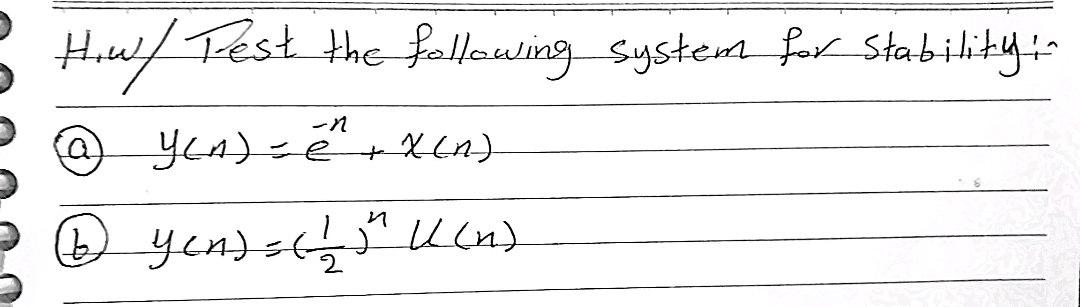 H.w/ Test the following system for stability:-
(a) y(n) = e^-n + x(n)
(b) y(n) = (1/2)^n u(n)